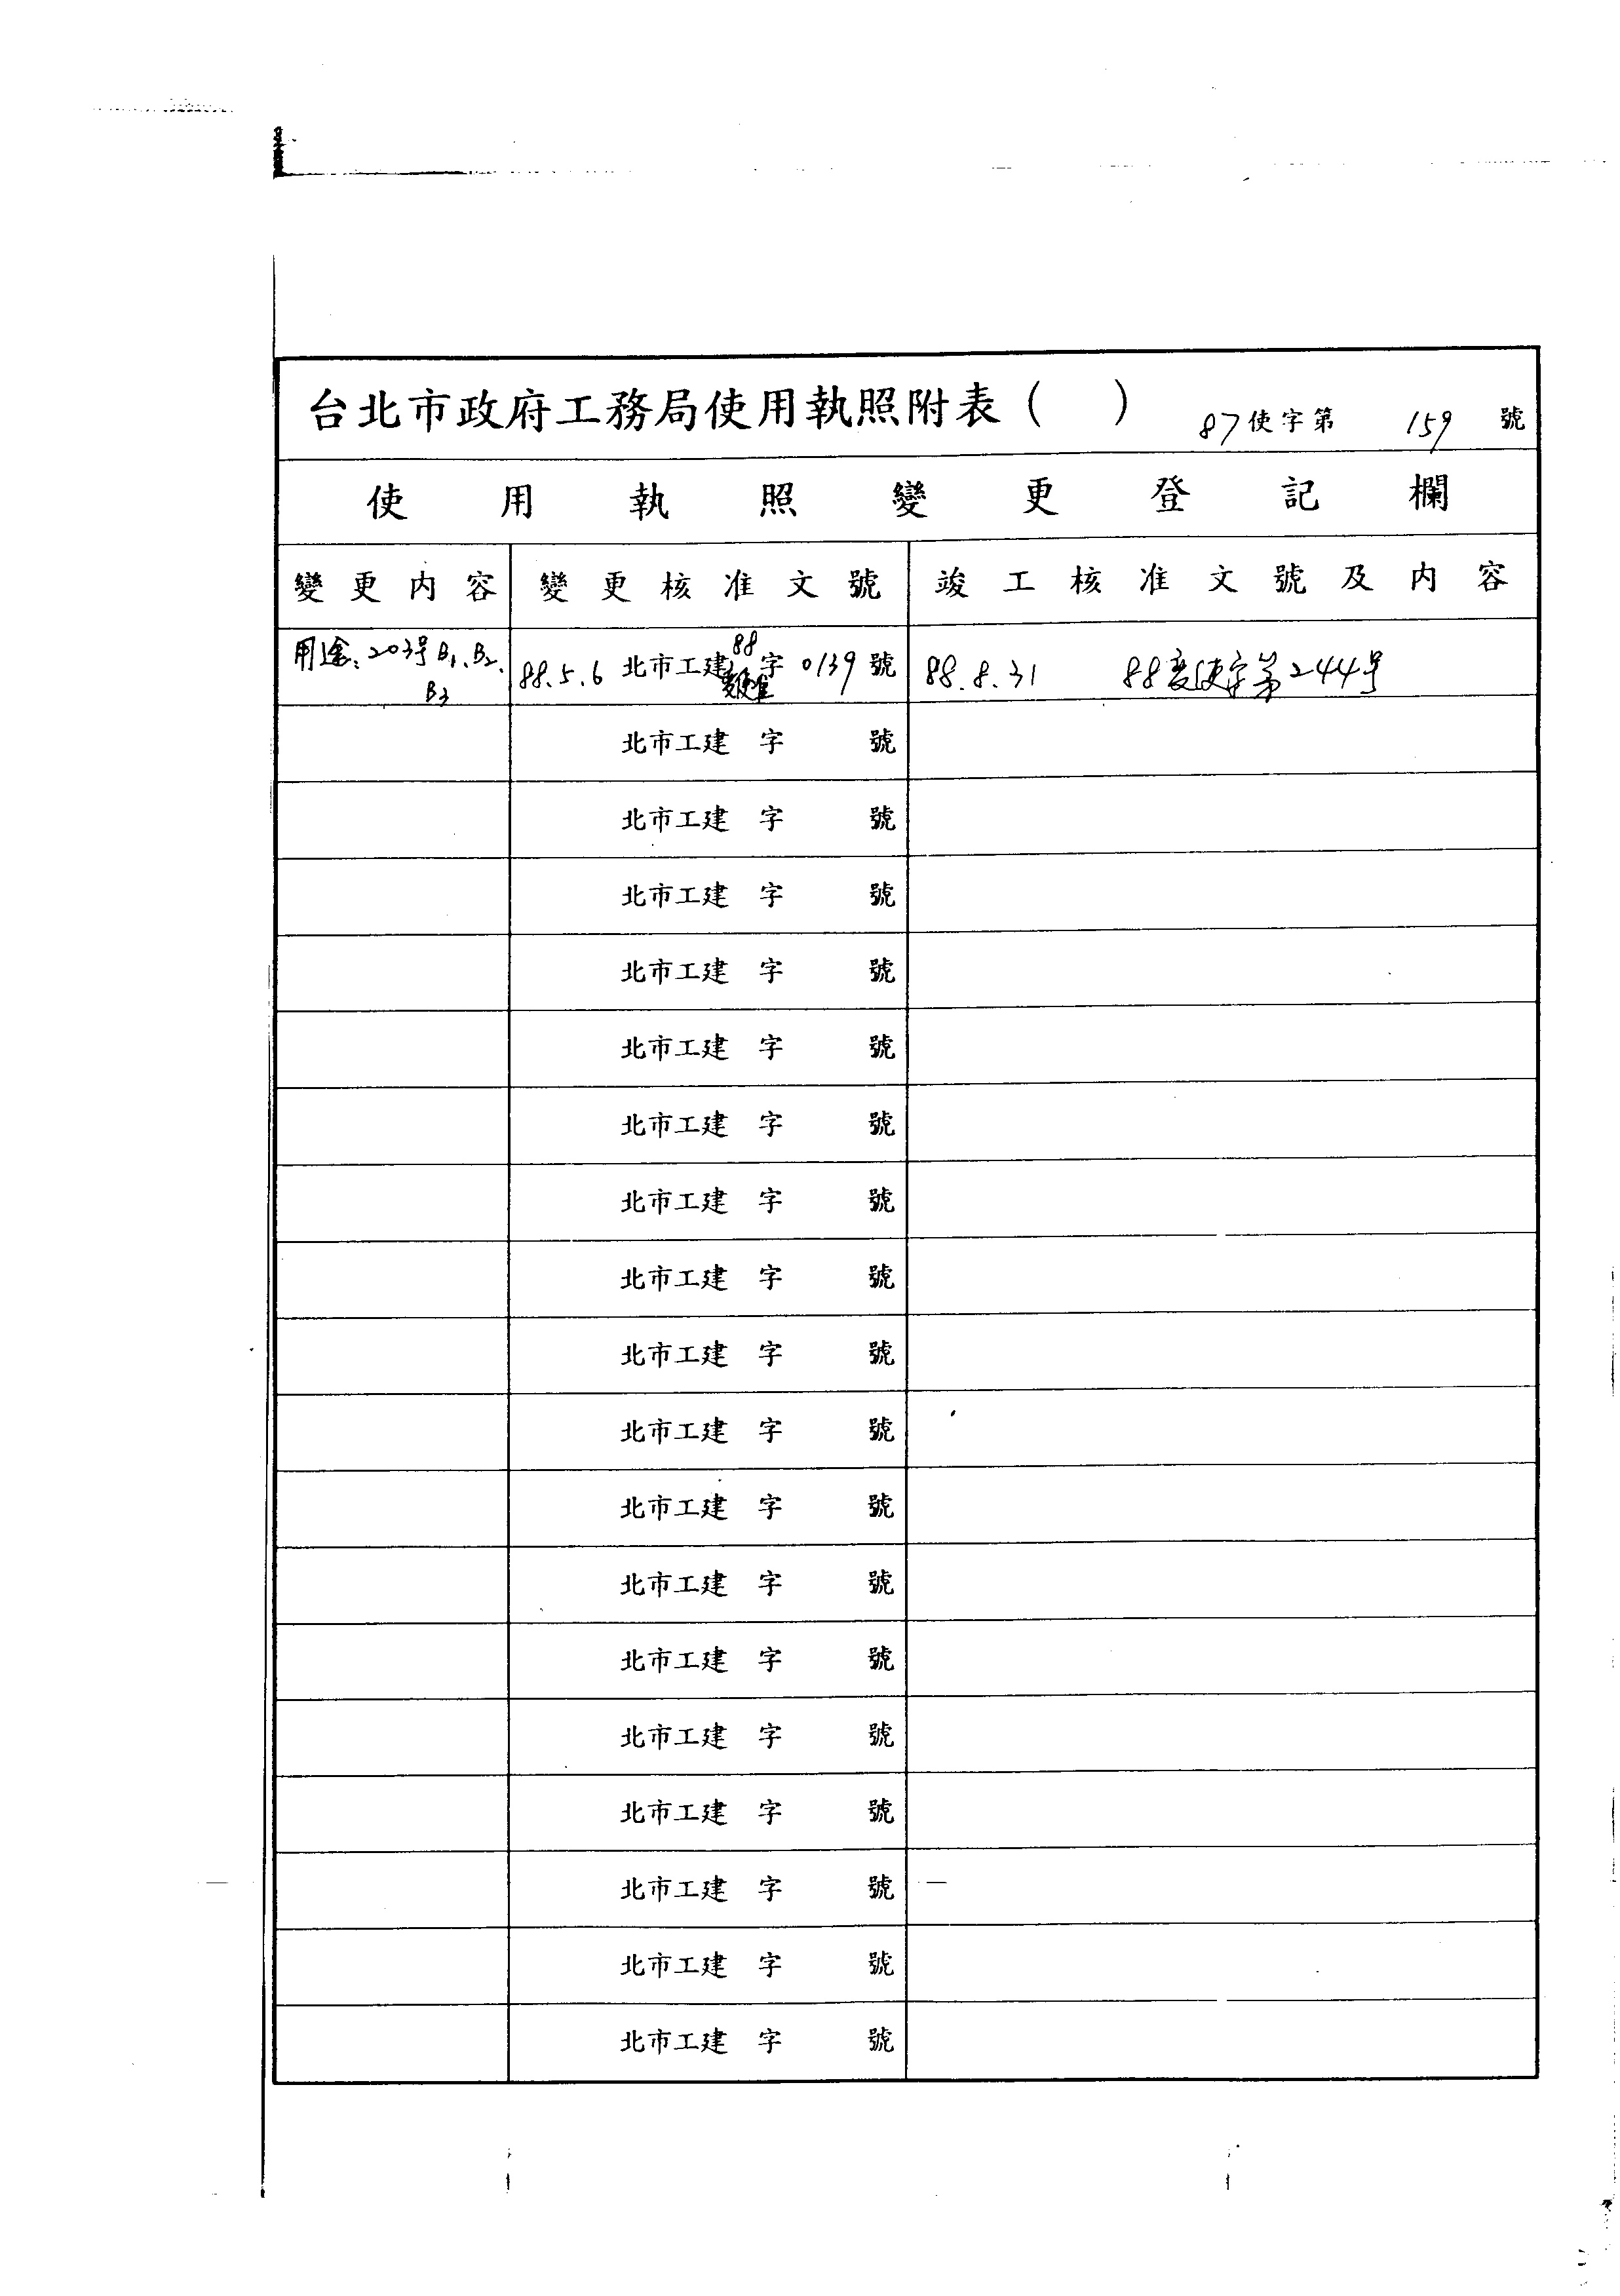 台北市政府工務局使用執照附表( ) 87使字第 159 號
使用執照變更登記欄
變更內容 變更核准文號 竣工核准文號及內容
用途:203号B1、B2、 88.5.6 北市工建88字0139號 88.8.31 88變使字第244号
B3
北市工建 字 號
北市工建 字 號
北市工建 字 號
北市工建 字 號
北市工建 字 號
北市工建 字 號
北市工建 字 號
北市工建 字 號
北市工建 字 號
北市工建 字 號
北市工建 字 號
北市工建 字 號
北市工建 字 號
北市工建 字 號
北市工建 字 號
北市工建 字 號
北市工建 字 號
北市工建 字 號